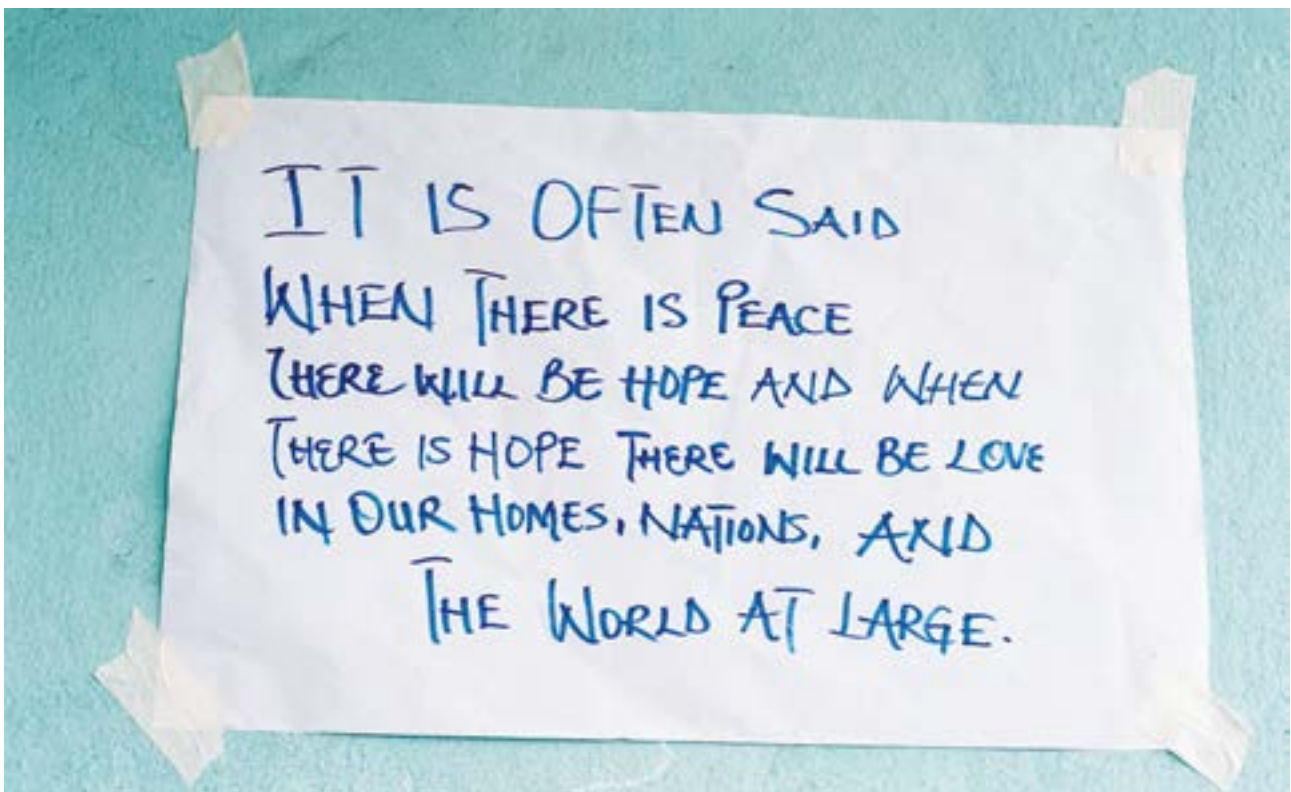 IT IS OFTEN SAID
WHEN THERE IS PEACE
THERE WILL BE HOPE AND WHEN
THERE IS HOPE THERE WILL BE LOVE
IN OUR HOMES, NATIONS, AND
THE WORLD AT LARGE.